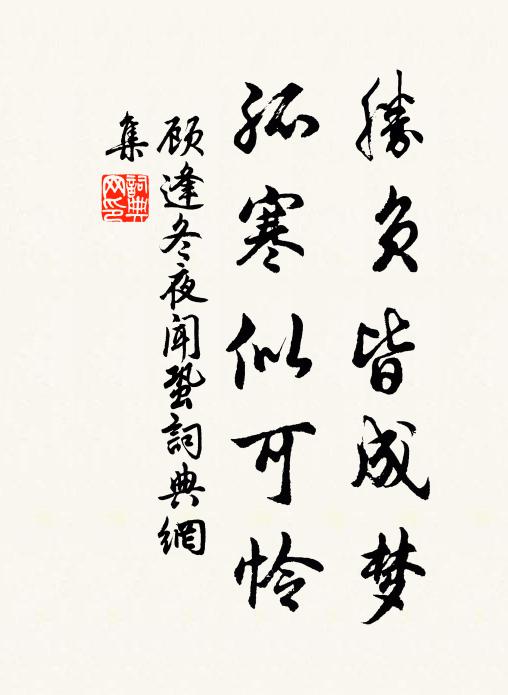 勝负皆成梦
孤寒似可怜
顾逢冬夜闻蛩詞典網
集
詞典
网印